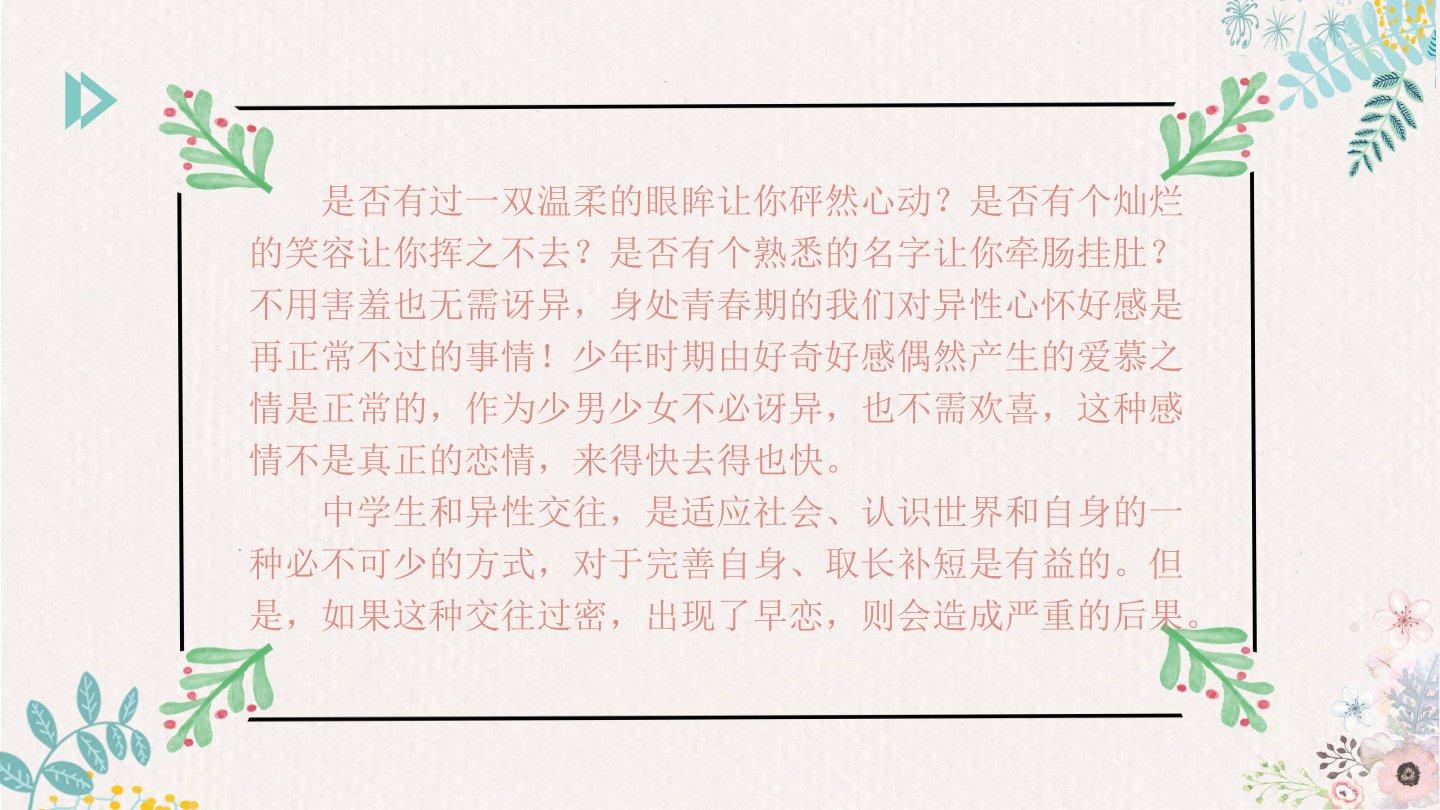 是否有过一双温柔的眼眸让你砰然心动？是否有个灿烂
的笑容让你挥之不去？是否有个熟悉的名字让你牵肠挂肚？
不用害羞也无需讶异，身处青春期的我们对异性心怀好感是
再正常不过的事情！少年时期由好奇好感偶然产生的爱慕之
情是正常的，作为少男少女不必讶异，也不需欢喜，这种感
情不是真正的恋情，来得快去得也快。
中学生和异性交往，是适应社会、认识世界和自身的一
种必不可少的方式，对于完善自身、取长补短是有益的。但
是，如果这种交往过密，出现了早恋，则会造成严重的后果。